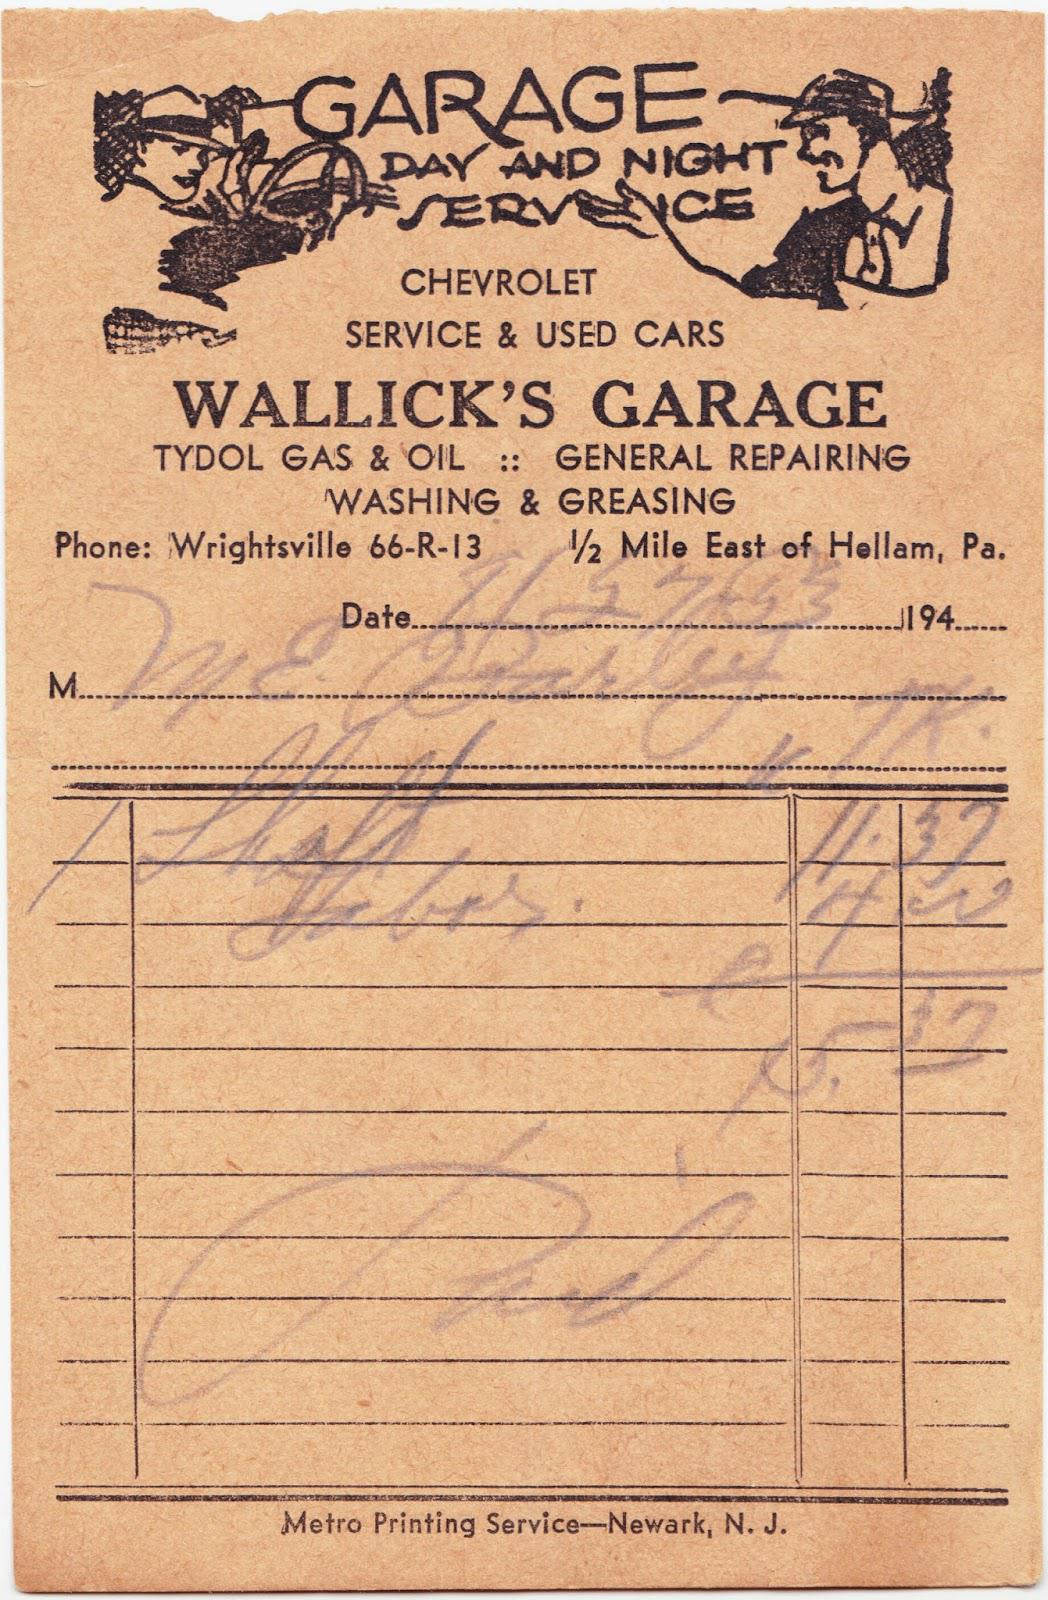 GARAGE
DAY AND NIGHT
SERVICE
CHEVROLET
SERVICE & USED CARS
WALLICK'S GARAGE
TYDOL GAS & OIL :: GENERAL REPAIRING
WASHING & GREASING
Phone: Wrightsville 66-R-13 1/2 Mile East of Hellam, Pa.
Date 194
M M E.
1 Shaft 11.37
Labor. 4 00
15.37
Paid
Metro Printing Service—Newark, N. J.